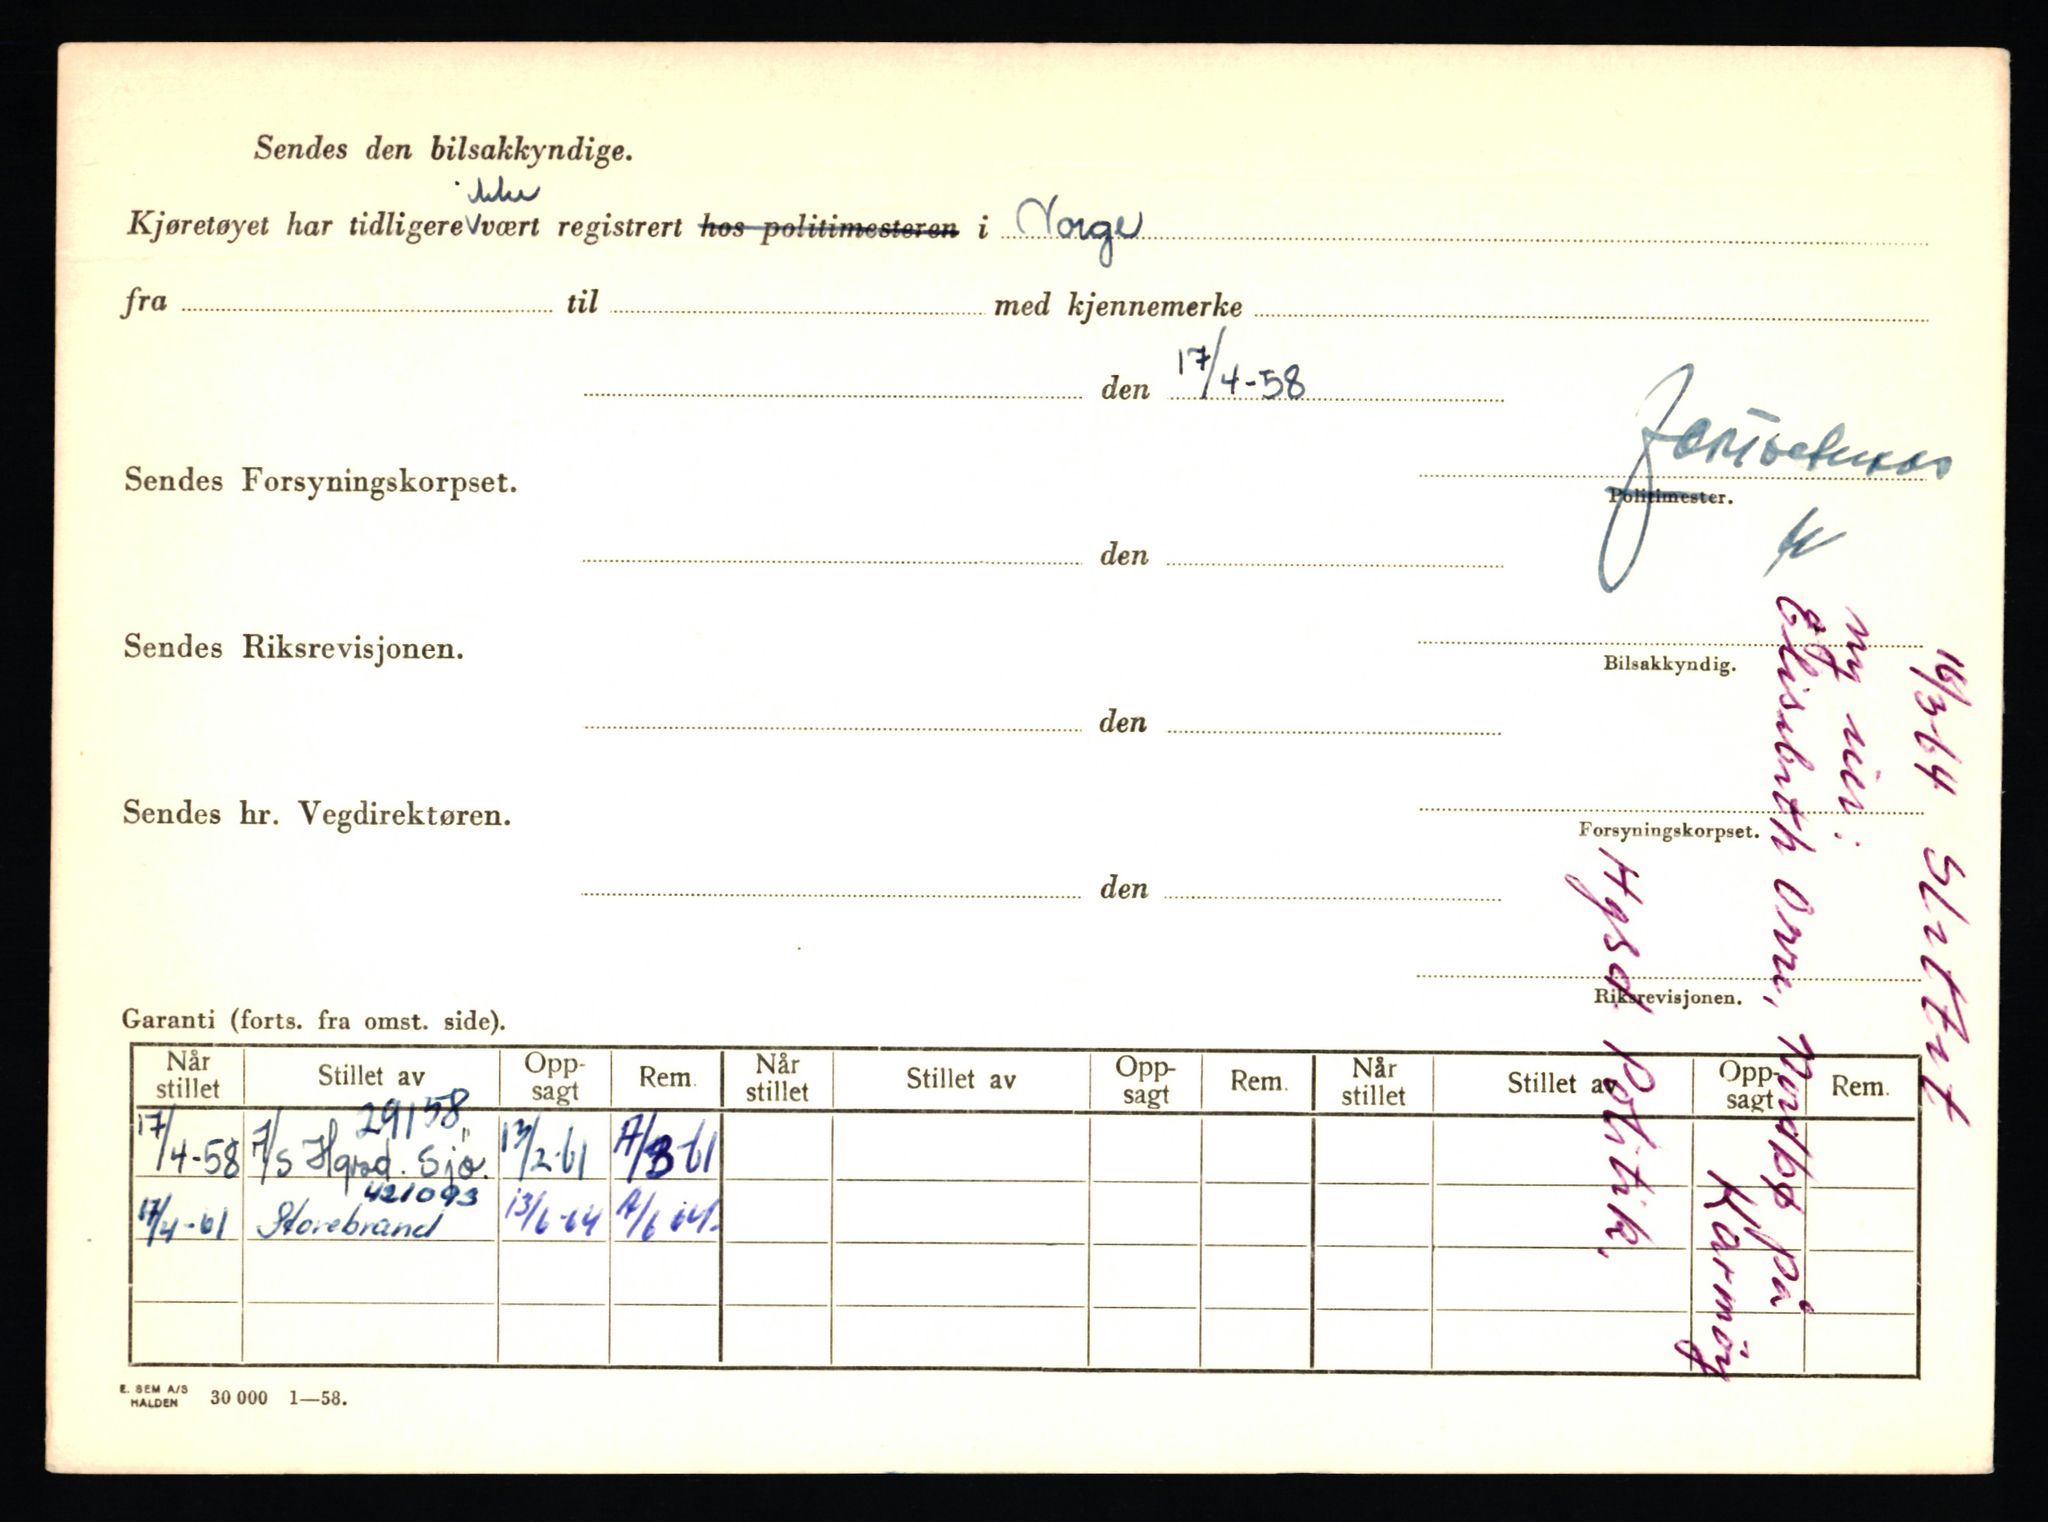 Sendes den bilsakkyndige.
ikke
Kjøretøyet har tidligere vært registrert hos politimesteren i Norge
fra til med kjennemerke
den 17/4-58
Sendes Forsyningskorpset.
Politimester.
den
Sendes Riksrevisjonen.
Bilsakkyndig.
den
Sendes hr. Vegdirektøren.
Forsyningskorpset.
den
Riksrevisjonen.
16/3-64 Slettet
ny eier:
Elisabeth Orre, Nordbø på
Karmöy
Hgsd Politik.
Garanti (forts. fra omst. side).
Når stillet Stillet av Opp-sagt Rem. Når stillet Stillet av Opp-sagt Rem. Når stillet Stillet av Opp-sagt Rem.
29158
17/4-58 A/S Hgsd. Sjø. 13/2-61 A/3-61
421093
17/4-61 Storebrand 13/6-64 A/6 64
E. SEM A/S
HALDEN 30 000 1—58.